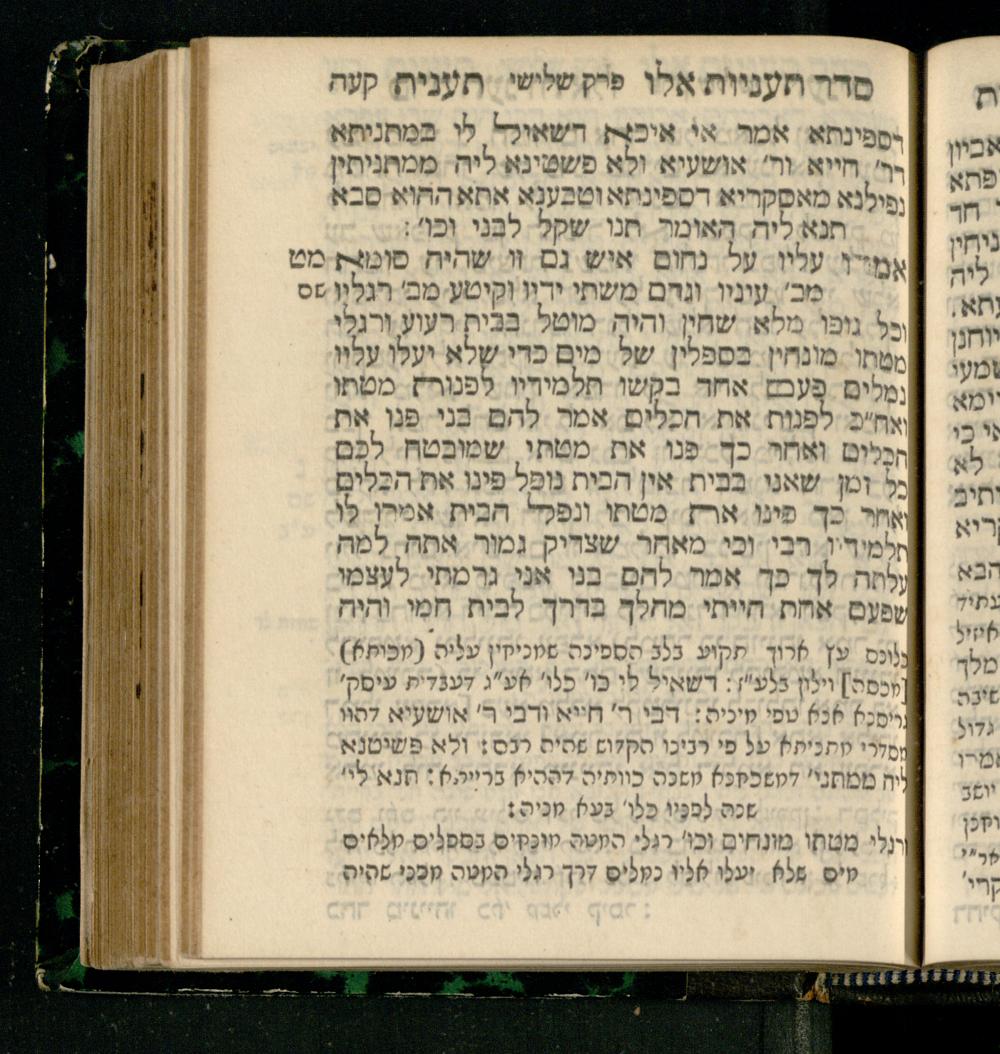 סדר תעניות אלו פרק שלישי תענית קעה
דספינתא אמר אי איכא דשאיל לי במתניתא
דר׳ חייא ור׳ אושעיא ולא פשטינא ליה ממתניתין
נפילנא מאסקריא דספינתא וטבענא אתא ההוא סבא
תנא ליה האומר תנו שקל לבני וכו׳ :
אמרו עליו על נחום איש גם זו שהיה סומא מט
מב׳ עיניו וגדם משתי ידיו וקיטע מב׳ רגליו שס
וכל גופו מלא שחין והיה מוטל בבית רעוע ורגלי
מטתו מונחין בספלין של מים כדי שלא יעלו עליו
נמלים פעם אחד בקשו תלמידיו לפנות מטתו
ואח״כ לפנות את הכלים אמר להם בני פנו את
הכלים ואחר כך פנו את מטתי שמובטח לכם
כל זמן שאני בבית אין הבית נופל פינו את הכלים
ואחר כך פינו את מטתו ונפל הבית אמרו לו
תלמידיו רבי וכי מאחר שצדיק גמור אתה למה
עלתה לך כך אמר להם בני אני גרמתי לעצמי
שפעם אחת הייתי מהלך בדרך לבית חמי והיה
כלונס עץ ארוך תקוע בלב הספינה שמניקין עליה (מכותא)
[מכסה] וילון בלע״ז : דשאיל לי כו׳ כלו׳ אע״ג דעבדית עיסק׳
גריסנא אנא טפי מיניה : דבי ר׳ חייא ודבי ר׳ אושעיא דהוו
מסדרי מתניתא על פי רבינו הקדוש שהיה רבם : ולא פשיטנא
ליה ממתני׳ דמשכחנא משנה כוותיה דההיא ברייתא : תנא לי׳
שנה לפניו כלו׳ בעא מניה :
ורגלי מטתו מונחים וכו׳ רגלי המטה מונחים בספלים מלאים
מים שלא יעלו אליו נמלים דרך רגלי המטה מפני שהיה